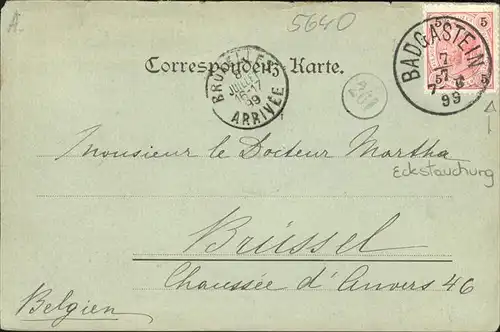 A.
5640
Correspondenz-Karte.
BADGASTEIN
7
7
99
5
5
5
5
BRUXELLES
JUIL
16-17
99
ARRIVÉE
201
Monsieur le Docteur Martha
Eckstauchung
Brüssel
Chaussée d'Anvers 46
Belgien